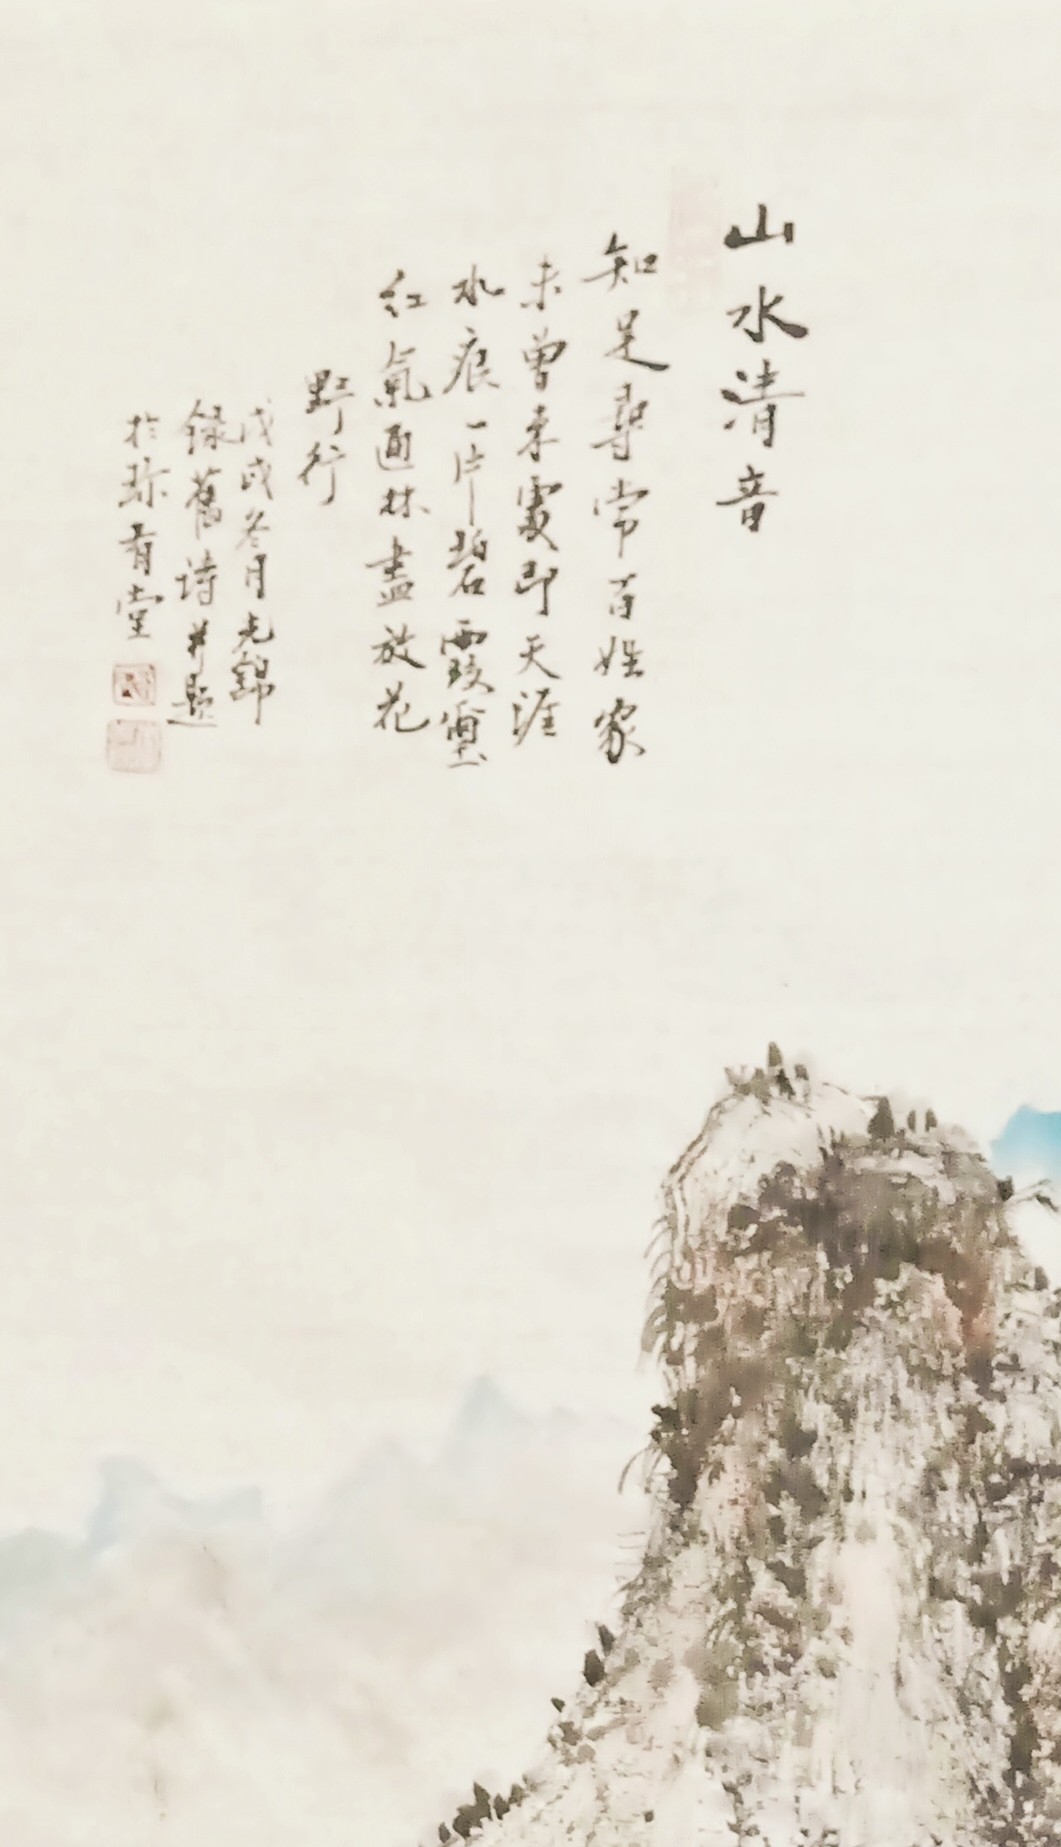 山水清音
知足尋常百姓家
未曾來處即天涯
水痕一片碧霞壓
紅氣通林盡放花
野行
戊戌冬月光錦
錄舊詩并題
於珎有堂